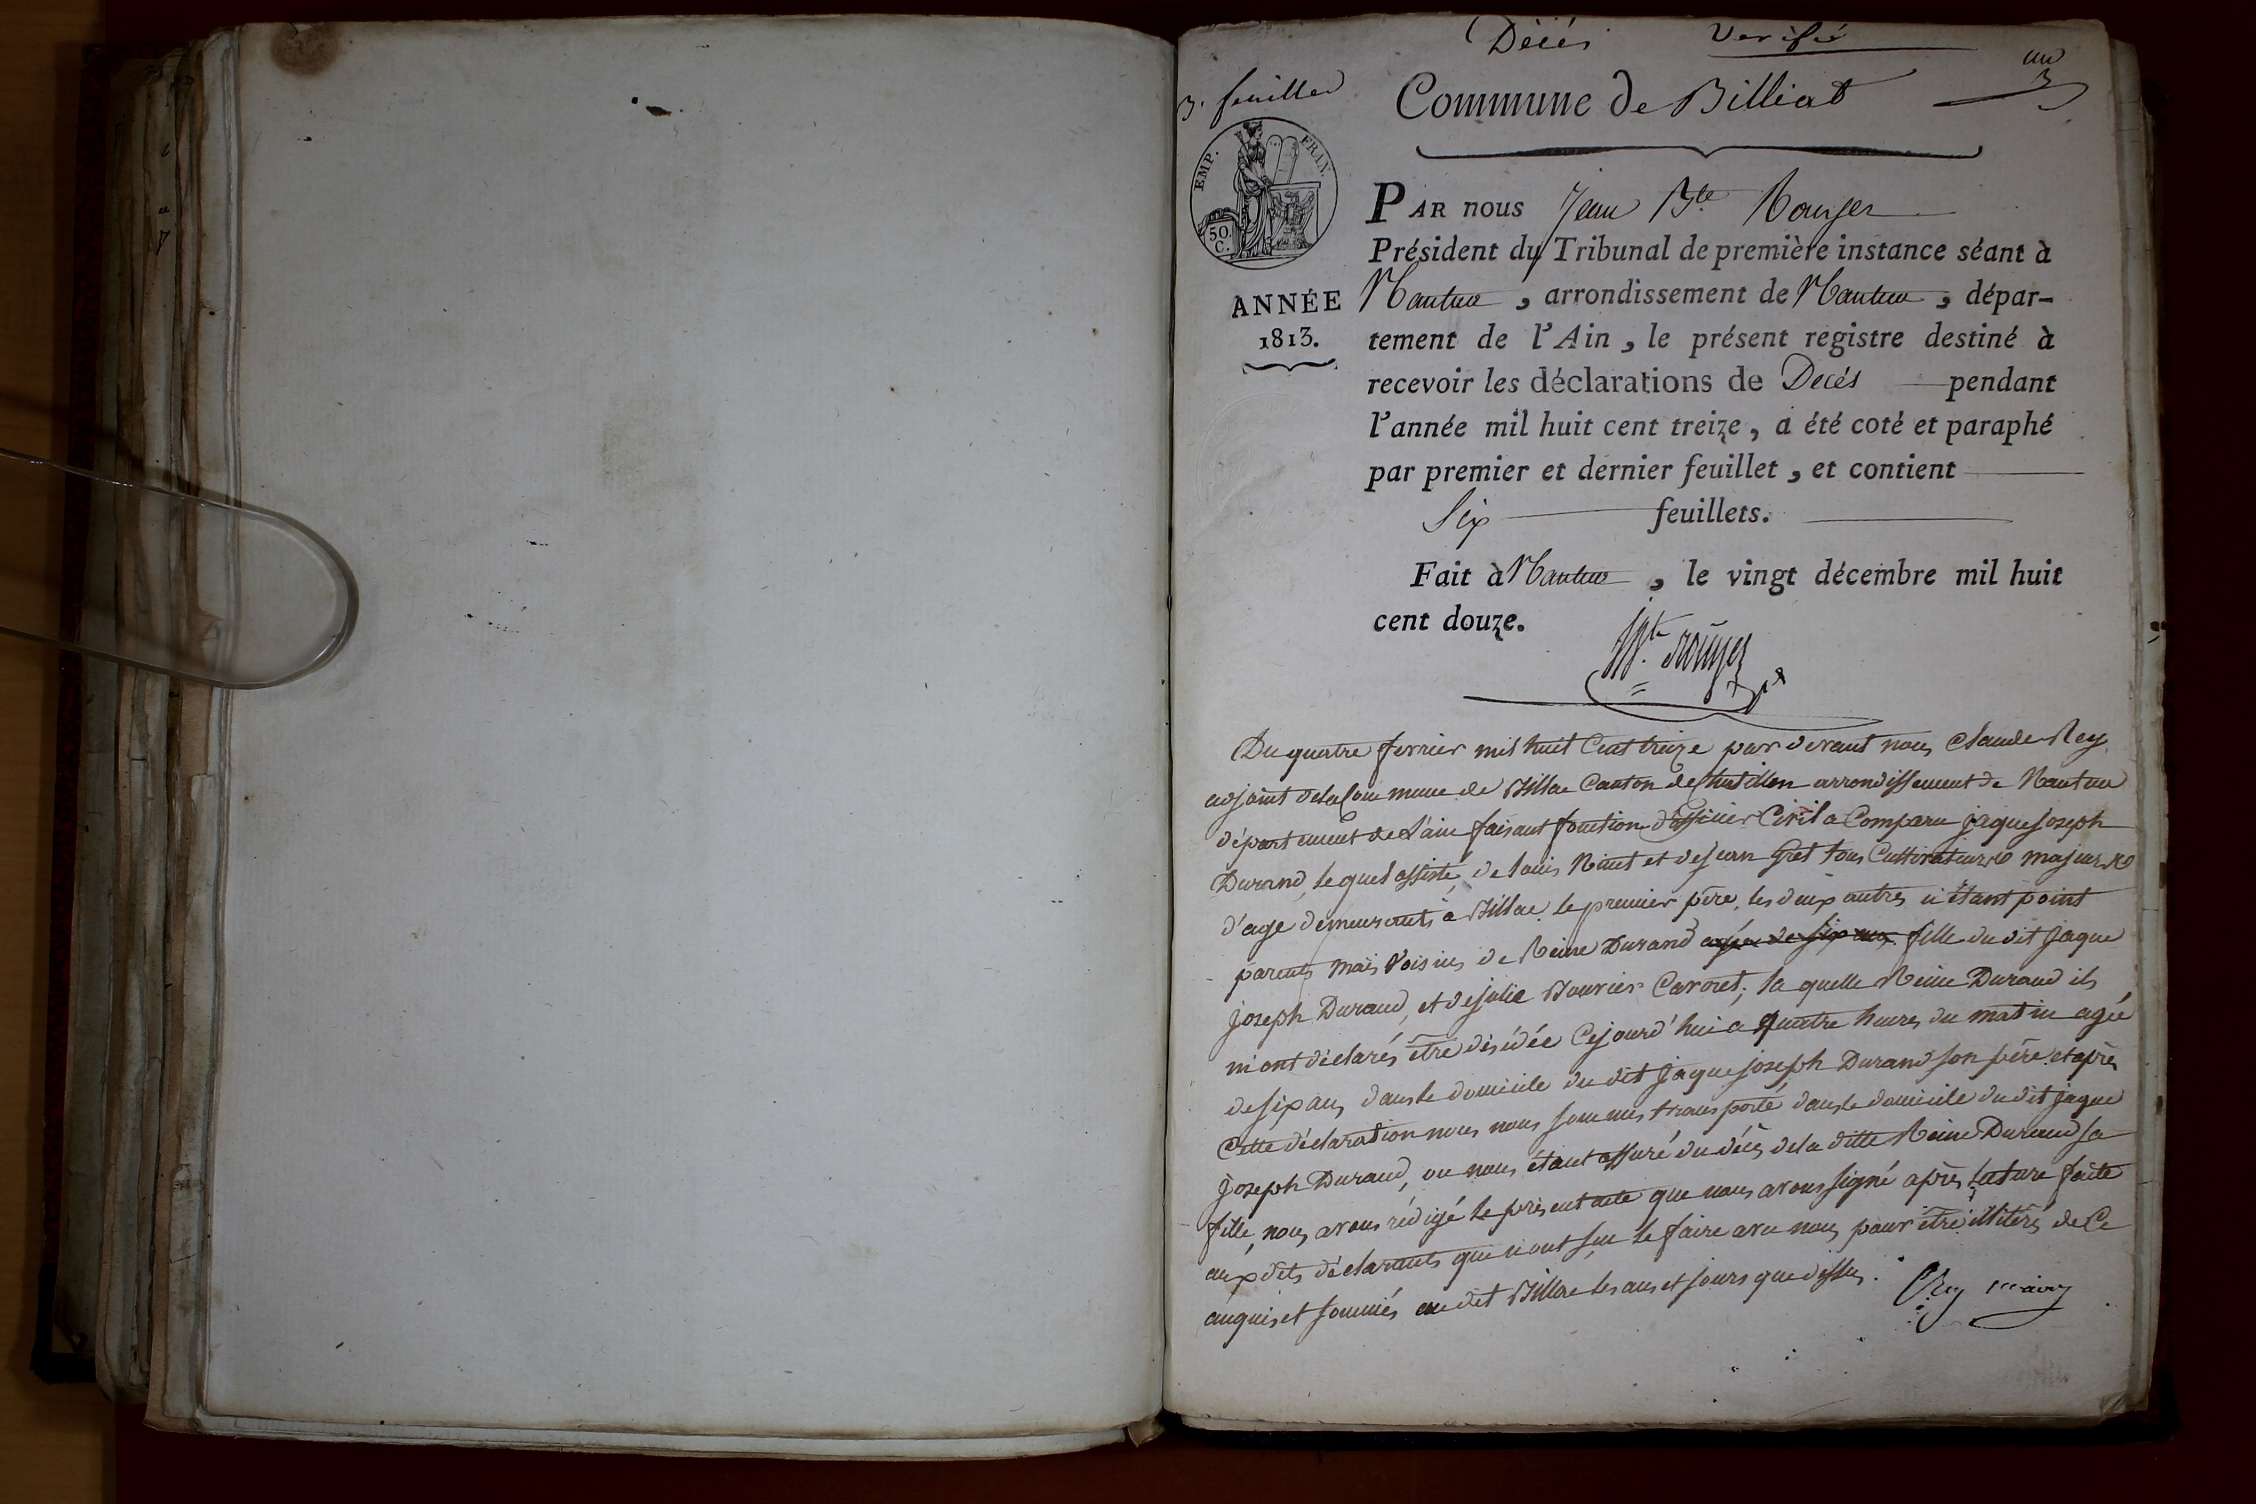 Décés Verifié
un
3. feuilles
3
Commune de Billiat
EMP. FRAN.
50.
C.
ANNÉE
1813.
PAR nous Jean Bte Rouyer
Président du Tribunal de première instance séant à
Nantua, arrondissement de Nantua, dépar-
tement de l'Ain, le présent registre destiné à
recevoir les déclarations de Decés pendant
l'année mil huit cent treize, a été coté et paraphé
par premier et dernier feuillet, et contient
Six feuillets.
Fait à Nantua, le vingt décembre mil huit
cent douze.
Bte rouyer
Du quatre fevrier mil huit Cent treize par devant nous Claude Rey
adjoint de la Commune de Billiae Canton de Chatillon arrondissement de Nantua
département de l'ain faisant fonction d'officier Civil a Comparu jaque joseph
Durand, le quel assisté de louis Ninet et de jean Gret tous Cultivateurs majeurs
d'age demeurants à Billiae le premier père, les deux autres n'étant point
parents mais Voisins de Reine Durand agée de six ans fille du dit jaque
joseph Durand, et de julie Bouvier Carvret; la quelle Reine Durand ils
m'ont déclarés être désédée Cejourd'hui a quatre heures du matin agée
de six ans, dans le domicile du dit jaque joseph Durand son père, et après
Cette déclaration nous nous sommes transporté dans le domicile du dit jaque
joseph Durand, ou nous étant assuré du décès de la ditte Reine Durand sa
fille, nous avons rédigé le présent acte que nous avons signé après lecture faite
aux dits déclarants que n'ont sçu le faire avec nous pour être illitérés de Ce
enquis et sommés au dit Billiae les ans et jours que dessus.
Rey maire